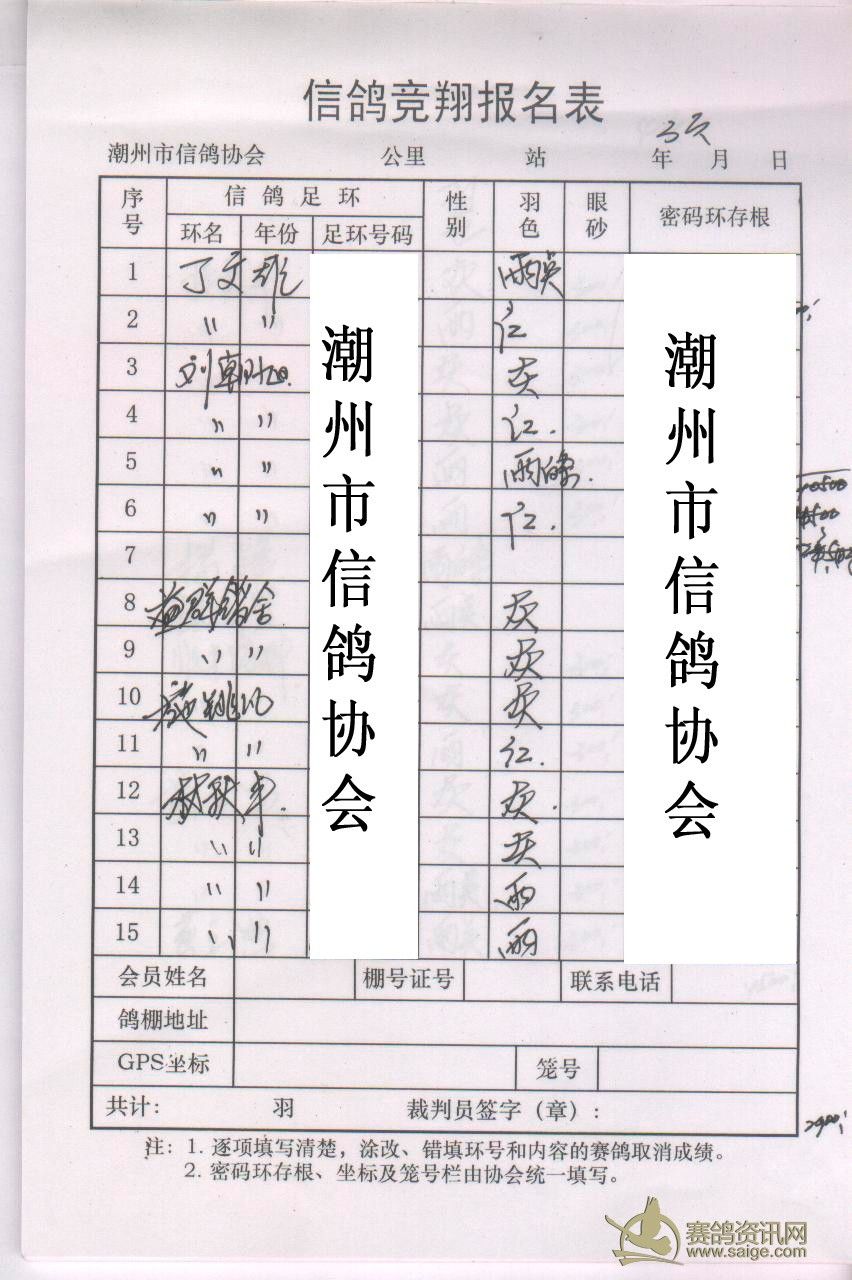 信鸽竞翔报名表
3页
潮州市信鸽协会 公里 站 年 月 日
序号 信鸽足环 性别 羽色 眼砂 密码环存根
环名 年份 足环号码
1 丁文彪 雨吴
2 〃 〃 红
3 刘朝旭 灰
4 〃 〃 红.
5 〃 〃 雨
6 〃 〃 红.
7
8 益群鸽舍 灰
9 〃 〃 灰
10 灰
11 〃 〃 红.
12 林跃丰. 灰.
13 〃 〃 灰
14 〃 〃 雨
15 〃 〃 雨
潮州市信鸽协会
潮州市信鸽协会
会员姓名 棚号证号 联系电话
鸽棚地址
GPS坐标 笼号
共计: 羽 裁判员签字(章):
注: 1. 逐项填写清楚,涂改、错填环号和内容的赛鸽取消成绩。
2. 密码环存根、坐标及笼号栏由协会统一填写。
赛鸽资讯网
www.saige.com